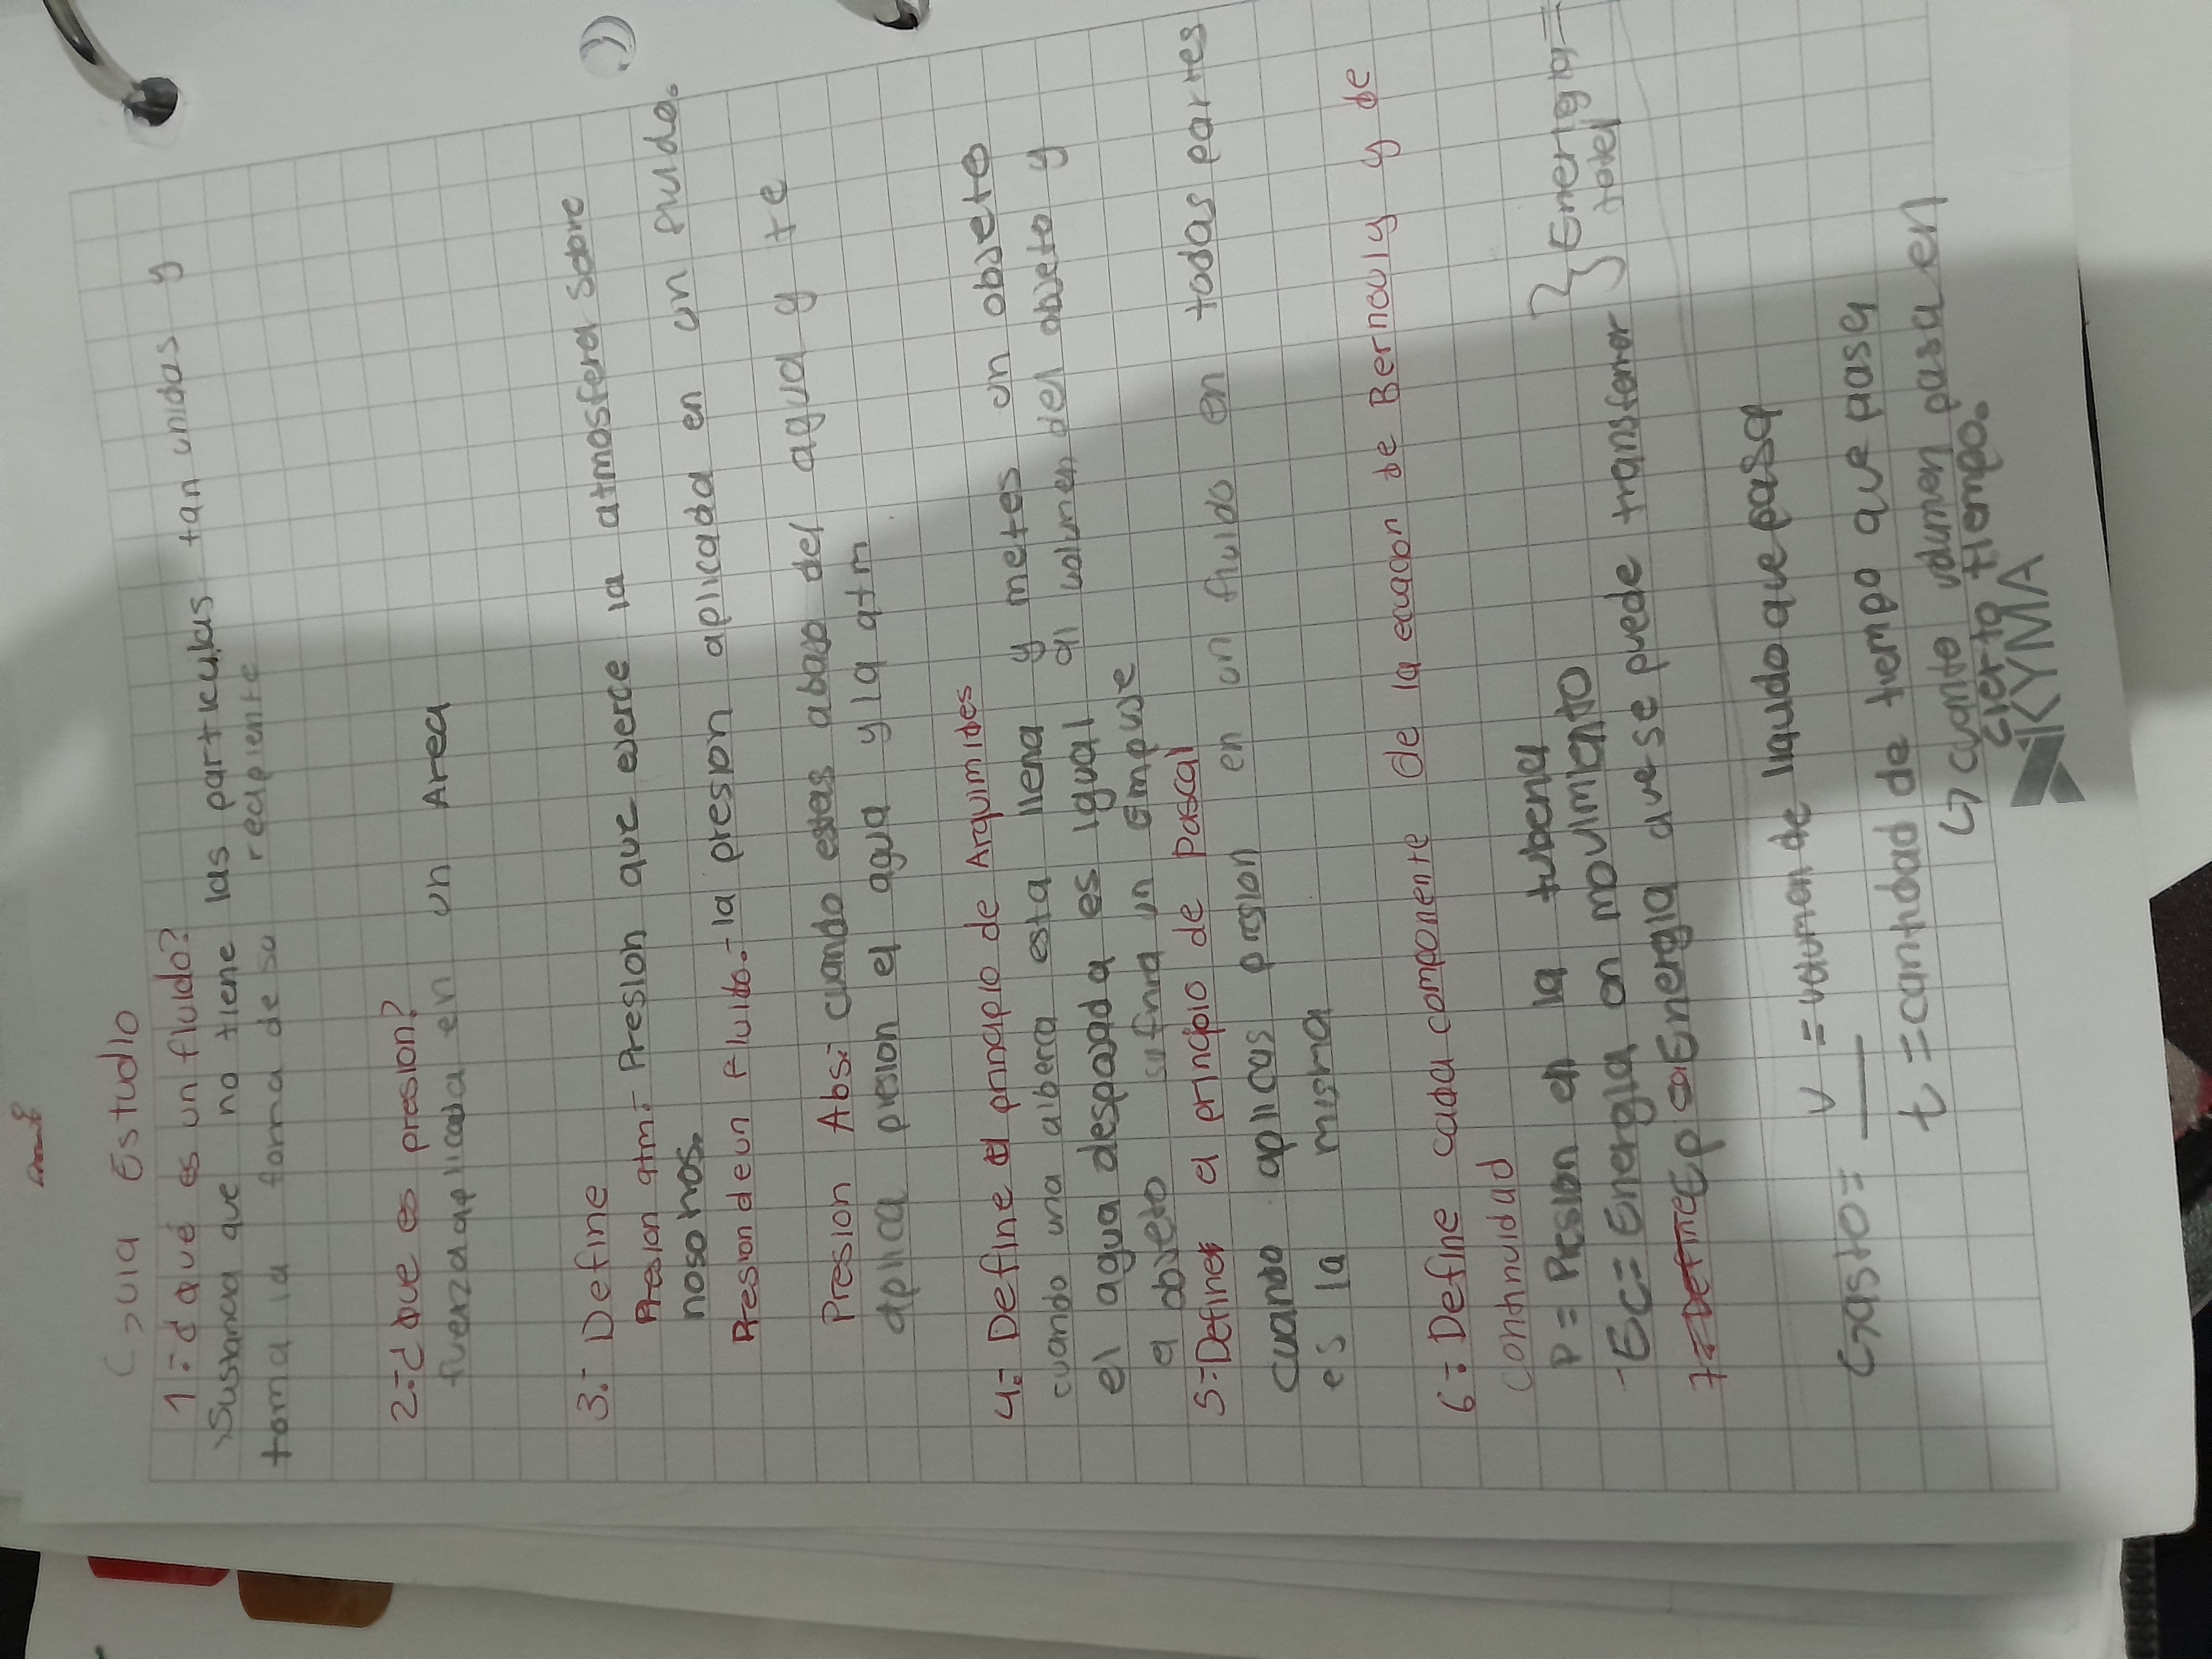 Guia Estudio
1.- ¿qué es un fluido?
Sustancia que no tiene las particulas tan unidas y
toma la forma de su recipiente
2.- ¿que es presion?
fuerza aplicada en un Area
3.- Define
Presion atm.- Presion que ejerce la atmosfera sobre
nosotros.
Presion de un fluido.- la presion aplicada en un fluido.
Presion Abs: cuando estas abajo del agua y te
aplica presion el agua y la atm
4.- Define el principio de Arquimides
cuando una alberca esta llena y metes un objeto
el agua despojada es igual al volumen del objeto y
el objeto sufrira un Empuje
5.- Define el principio de Pascal
cuando aplicas presion en un fluido en todas partes
es la misma
6.- Define cada componente de la ecuacion de Bernouly y de
continuidad
P = Presion en la tuberia
- Ec = Energia en movimiento } Energia =
7.- Define Ep = Energia que se puede transformar total
Gasto = V = volumen de liquido que pasa
t = cantidad de tiempo que pasa
↳ cuanto volumen pasa en
cierto tiempo.
KYMA